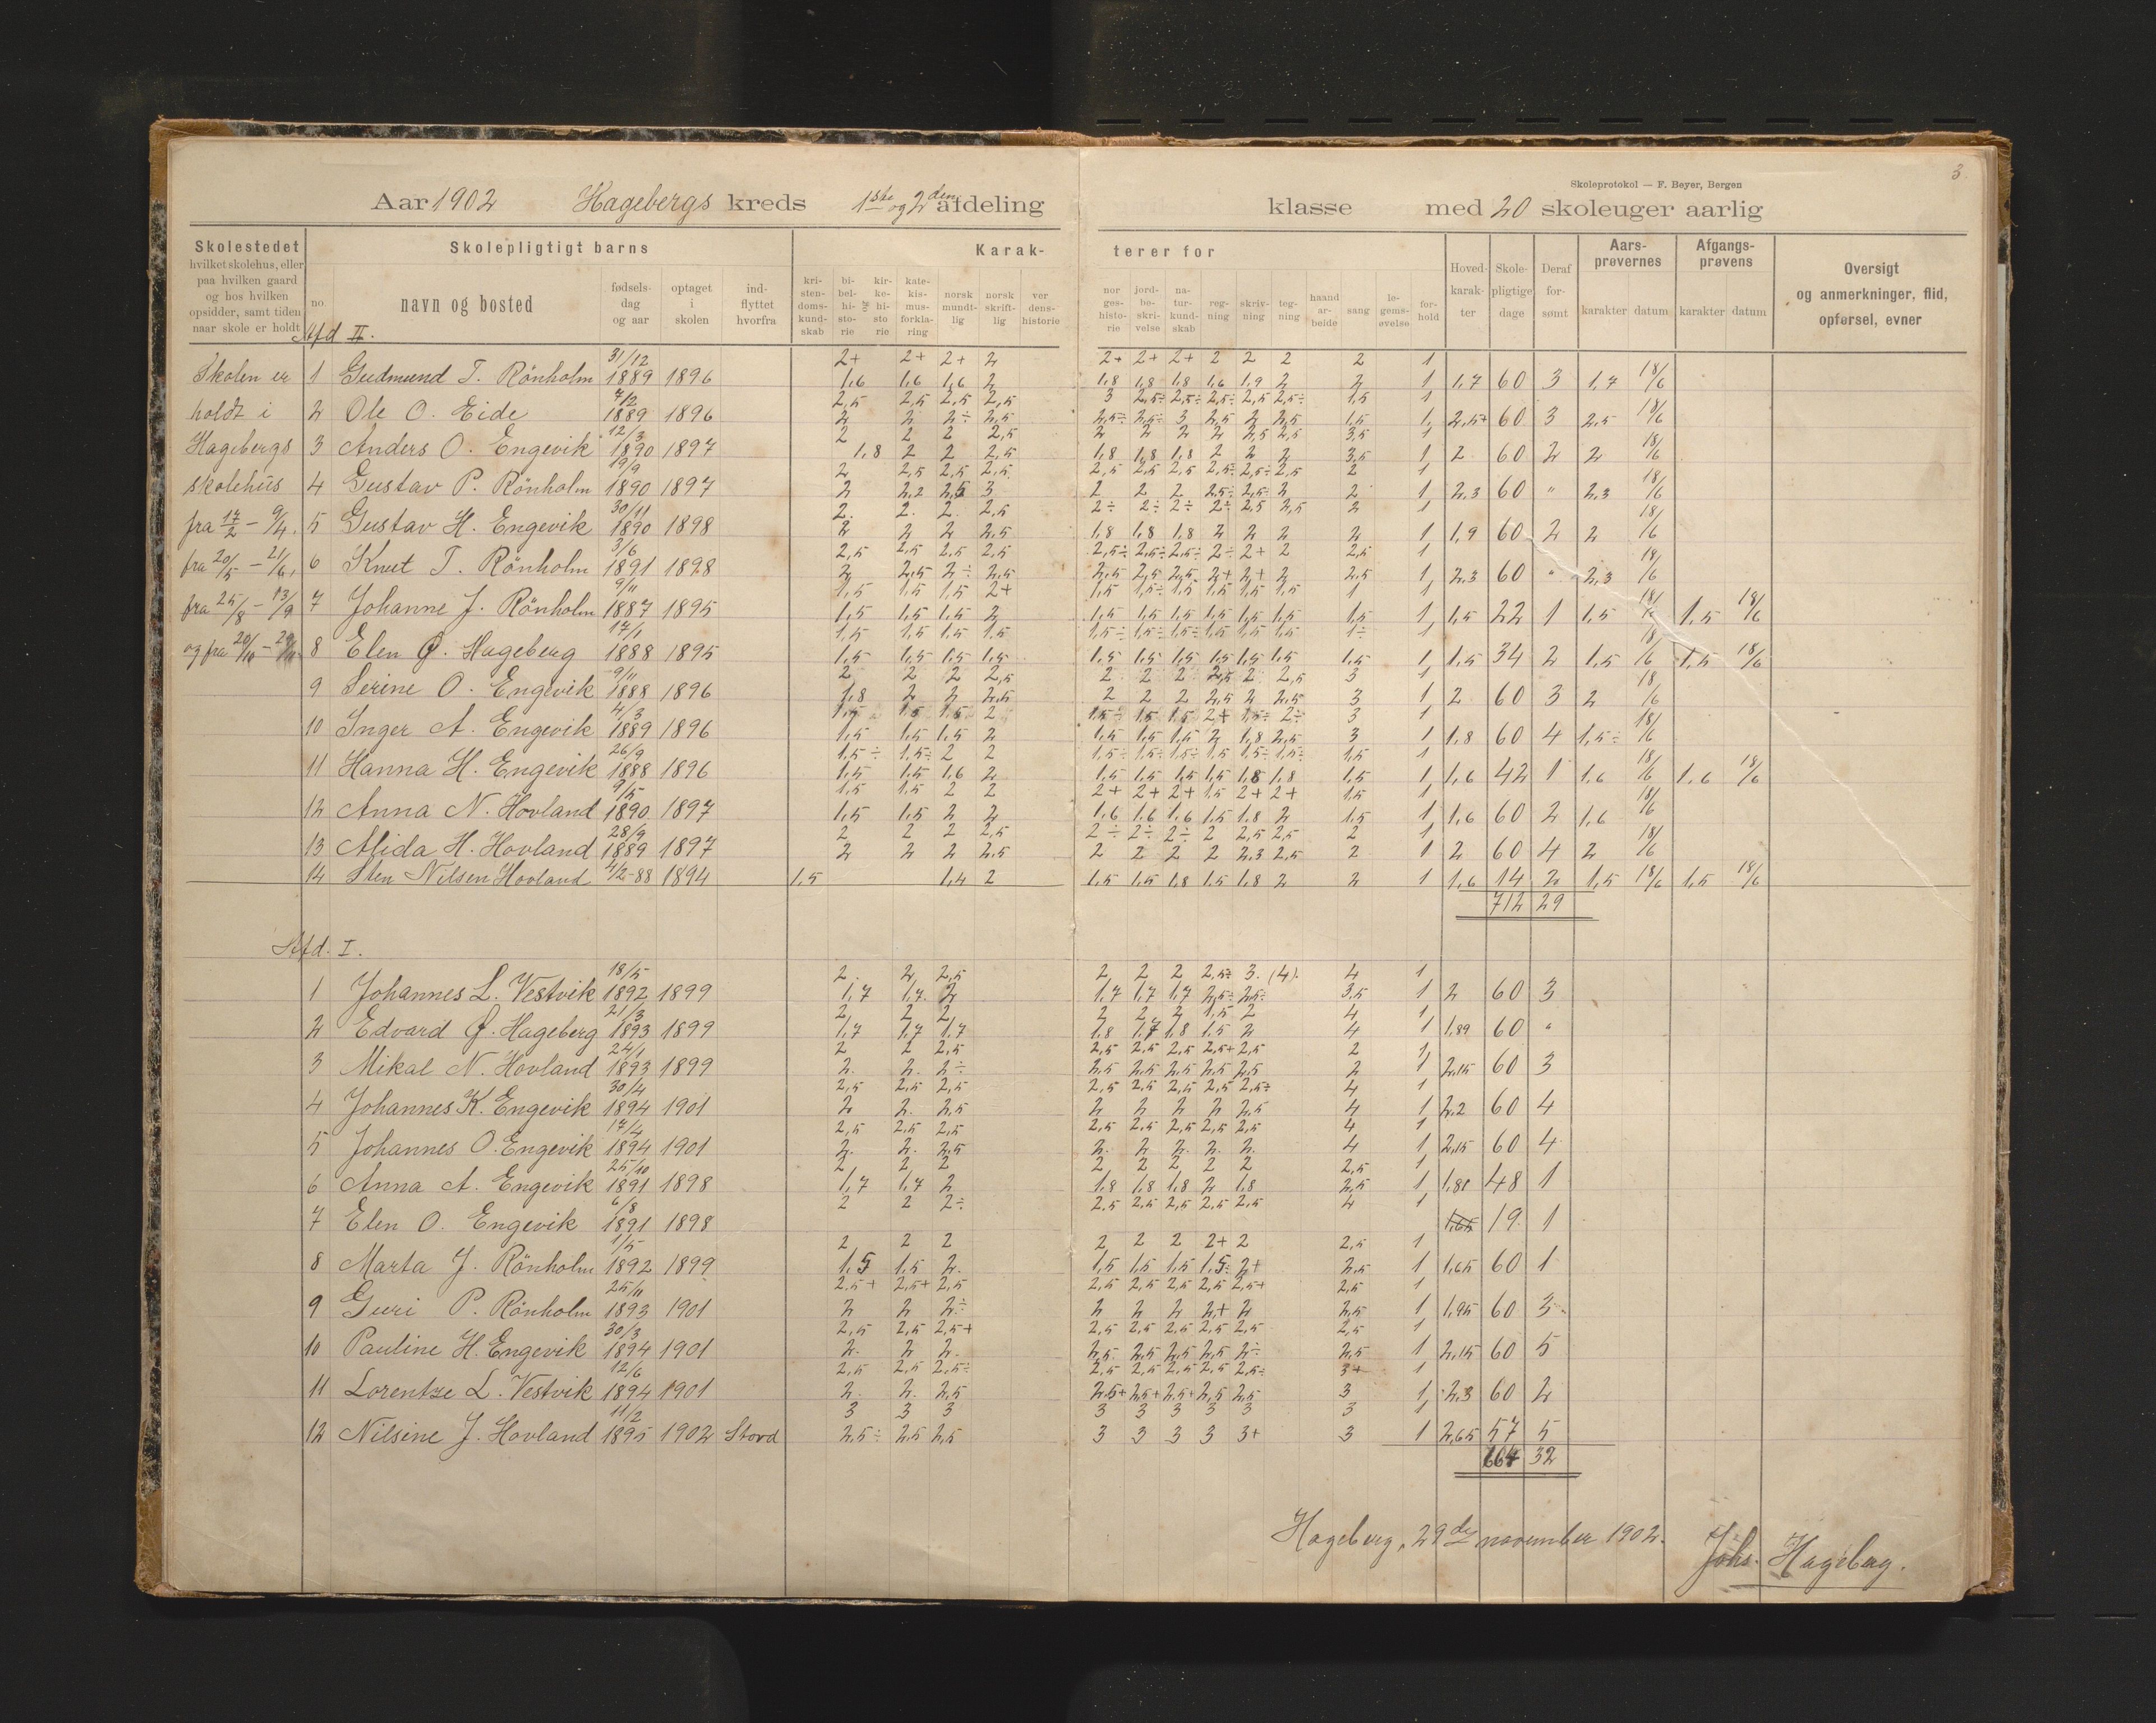 3
Skoleprotokol — F. Beyer, Bergen
Aar 1902 Hagebergs kreds 1ste og 2den afdeling klasse med 20 skoleuger aarlig
Skolestedet hvilket skolehus, eller paa hvilken gaard og hos hvilken opsidder, samt tiden naar skole er holdt
Skolepligtigt barns
no. navn og bosted fødselsdag og aar optaget i skolen indflyttet hvorfra
Karakterer for
kristendomskundskab bibelhistorie og kirkehistorie katekismusforklaring norsk mundtlig norsk skriftlig verdenshistorie norgeshistorie jordbeskrivelse naturkundskab regning skrivning tegning haandarbeide sang legemsøvelse forhold
Hovedkarakter Skolepligtige dage Deraf forsømt
Aarsprøvernes karakter datum
Afgangsprøvens karakter datum
Oversigt og anmerkninger, flid, opførsel, evner
Afd II.
31/12 2+ 2+ 2+ 2 2+ 2+ 2+ 2 2 2 2 1
Skolen er 1 Gudmund T. Rönholm 1889 1896 1,6 1,6 1,6 2 1,8 1,8 1,8 1,6 1,9 2 2 1 1,7 60 3 1,7 18/6
7/2 2,5 2,5 2,5 2,5 3 2,5÷ 2,5÷ 2,5÷ 2,5 2,5÷ 1,5 1
holdt i 2 Ole O. Eide 1889 1896 2 2 2÷ 2,5 2,5÷ 2,5÷ 3 2,5 2 2,5 1,5 1 2,5+ 60 3 2,5 18/6
12/3 2 2 2 2,5 2 2 2 2 2,5 2,5 3,5 1
Hagebergs 3 Anders O. Engevik 1890 1897 1,8 2 2 2,5 1,8 1,8 1,8 2 2 2 3,5 1 2 60 2 2 18/6
19/9 2 2,5 2,5 2,5 2,5 2,5 2,5 2,5÷ 2,5÷ 2,5 2 1
skolehus 4 Gustav P. Rönholm 1890 1897 2 2,2 2,5 3 2 2 2 2,5÷ 2,5÷ 2 2 1 2,3 60 " 2,3 18/6
30/11 2. 2. 2. 2,5 2÷ 2÷ 2÷ 2÷ 2,5 2,5 2 1
fra 17/2 – 9/4, 5 Gustav H. Engevik 1890 1898 2 2 2 2,5 1,8 1,8 1,8 2 2 2 2 1 1,9 60 2 2 18/6
3/6 2,5 2,5 2,5 2,5 2,5÷ 2,5÷ 2,5÷ 2÷ 2+ 2 2,5 1
fra 20/5 – 21/6, 6 Knut T. Rönholm 1891 1898 2 2,5 2÷ 2,5 2,5 2,5 2,5 2+ 2+ 2 2,5 1 2,3 60 " 2,3 18/6
9/11 1,5 1,5 1,5 2+ 1,5 1,5÷ 1,5 1,5 1,5 1,5 1 1
fra 25/8 – 13/9 7 Johanne J. Rönholm 1887 1895 1,5 1,5 1,5 2 1,5 1,5 1,5 1,5 1,5 1,5 1,5 1 1,5 22 1 1,5 18/6 1,5 18/6
17/1 1,5 1,5 1,5 1,5 1,5÷ 1,5÷ 1,5÷ 1,5 1,5 1,5 1÷ 1
og fra 20/10 – 29/11 8 Elen Ø. Hageberg 1888 1895 1,5 1,5 1,5 1,5 1,5 1,5 1,5 1,5 1,5 1,5 1,5 1 1,5 34 2 1,5 18/6 1,5 18/6
9/11 2 2 2 2,5 2 2 2 2,5 2 2,5 3 1
9 Serine O. Engevik 1888 1896 1,8 2 2 2,5 2 2 2 2,5 2 2,5 3 1 2 60 3 2 18/6
4/3 1,5 1,5 1,5 2 1,5÷ 1,5 1,5 2+ 1,5÷ 2÷ 3 1
10 Inger A. Engevik 1889 1896 1,5 1,5 1,5 2 1,5 1,5 1,5 2 1,8 2,5 3 1 1,8 60 4 1,5÷ 18/6
26/9 1,5÷ 1,5÷ 2 2 1,5÷ 1,5÷ 1,5÷ 1,5 1,5÷ 1,5÷ 1,5 1
11 Hanna H. Engevik 1888 1896 1,5 1,5 1,6 2 1,5 1,5 1,5 1,5 1,8 1,8 1,5 1 1,6 42 1 1,6 18/6 1,6 18/6
9/5 1,5 1,5 2 2 2+ 2+ 2+ 1,5 2+ 2+ 1,5 1
12 Anna N. Hovland 1890 1897 1,5 1,5 2 2 1,6 1,6 1,6 1,5 1,8 2 1,5 1 1,6 60 2 1,6 18/6
28/9 2 2 2 2,5 2÷ 2÷ 2÷ 2 2,5 2,5 2 1
13 Alida H. Hovland 1889 1897 2 2 2 2,5 2 2 2 2 2,3 2,5 2 1 2 60 4 2 18/6
14 Sten Nilsen Hovland 4/2-88 1894 1,5 1,4 2 1,5 1,5 1,8 1,5 1,8 2 2 1 1,6 14 2 1,5 18/6 1,5 18/6
712 29
Afd. I.
18/5 2. 2 2,5 2 2 2 2,5÷ 3. (4). 4 1
1 Johannes L. Vestvik 1892 1899 1,7 1,7. 2 1,7 1,7 1,7 2,5÷ 2,5÷ 3,5 1 2 60 3
21/3 2 2 2 2 2 2 1,5 2 4 1
2 Edvard Ø. Hageberg 1893 1899 1,7 1,7 1,7 1,8 1,7 1,8 1,5 2 4 1 1,89 60 "
24/1 2 2 2,5 2,5 2,5 2,5 2,5+ 2,5 2 1
3 Mikal N. Hovland 1893 1899 2. 2. 2÷ 2,5 2,5 2,5 2,5 2,5 2 1 2,15 60 3
30/4 2,5 2,5 2,5 2,5 2,5 2,5 2,5 2,5÷ 4 1
4 Johannes K. Engevik 1894 1901 2 2. 2,5 2 2 2 2 2,5 4 1 2,2 60 4
17/4 2,5 2,5 2,5 2,5 2,5 2,5 2,5 2,5 4 1
5 Johannes O. Engevik 1894 1901 2. 2. 2,5 2. 2. 2. 2. 2. 4 1 2,15 60 4
25/10 2 2 2 2 2 2 2 2 2,5 1
6 Anna A. Engevik 1891 1898 1,7 1,7 2 1,8 1,8 1,8 2 1,8 2,5 1 48 1
6/8 2 2 2÷ 2,5 2,5 2,5 2,5 2,5 4 1
7 Elen O. Engevik 1891 1898 1,65 19 1
1/5 2 2 2 2 2 2 2+ 2 2,5 1
8 Marta J. Rönholm 1892 1899 1,5 1,5 2. 1,5 1,5 1,5 1,5÷ 2+ 2,5 1 1,65 60 1
25/11 2,5+ 2,5+ 2,5 2,5 2,5 2,5 2,5 2,5+ 2,5 1
9 Guri P. Rönholm 1893 1901 2 2 2÷ 2 2 2 2,+ 2 2,5 1 1,95 60 3
30/3 2,5 2,5 2,5+ 2,5 2,5 2,5 2,5 2,5 2,5 1
10 Pauline H. Engevik 1894 1901 2. 2 2. 2,5 2,5 2,5 2,5 2÷ 2,5 1 2,15 60 5
12/6 2,5 2,5 2,5÷ 2,5 2,5 2,5 2,5 2,5÷ 3+ 1
11 Lorentze L. Vestvik 1894 1901 2. 2. 2,5 2,5+ 2,5+ 2,5+ 2,5 2,5 3 1 2,3 60 2
11/2 3 3 3 3 3 3 3 3 3 1
12 Nilsine J. Hovland 1895 1902 Stord 2,5÷ 2,5 2,5 3 3 3 3 3+ 3 1 2,65 57 5
664 32
Hageberg, 29de november 1902.
Johs. Hageberg.